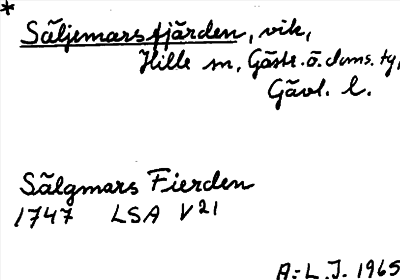 *
Säljemarsfjärden, vik,
Hille sn, Gästr. ö. doms. tg,
Gävl. l.
Sälgmars Fierden
1747 LSA V21
A:-L. J. 1965